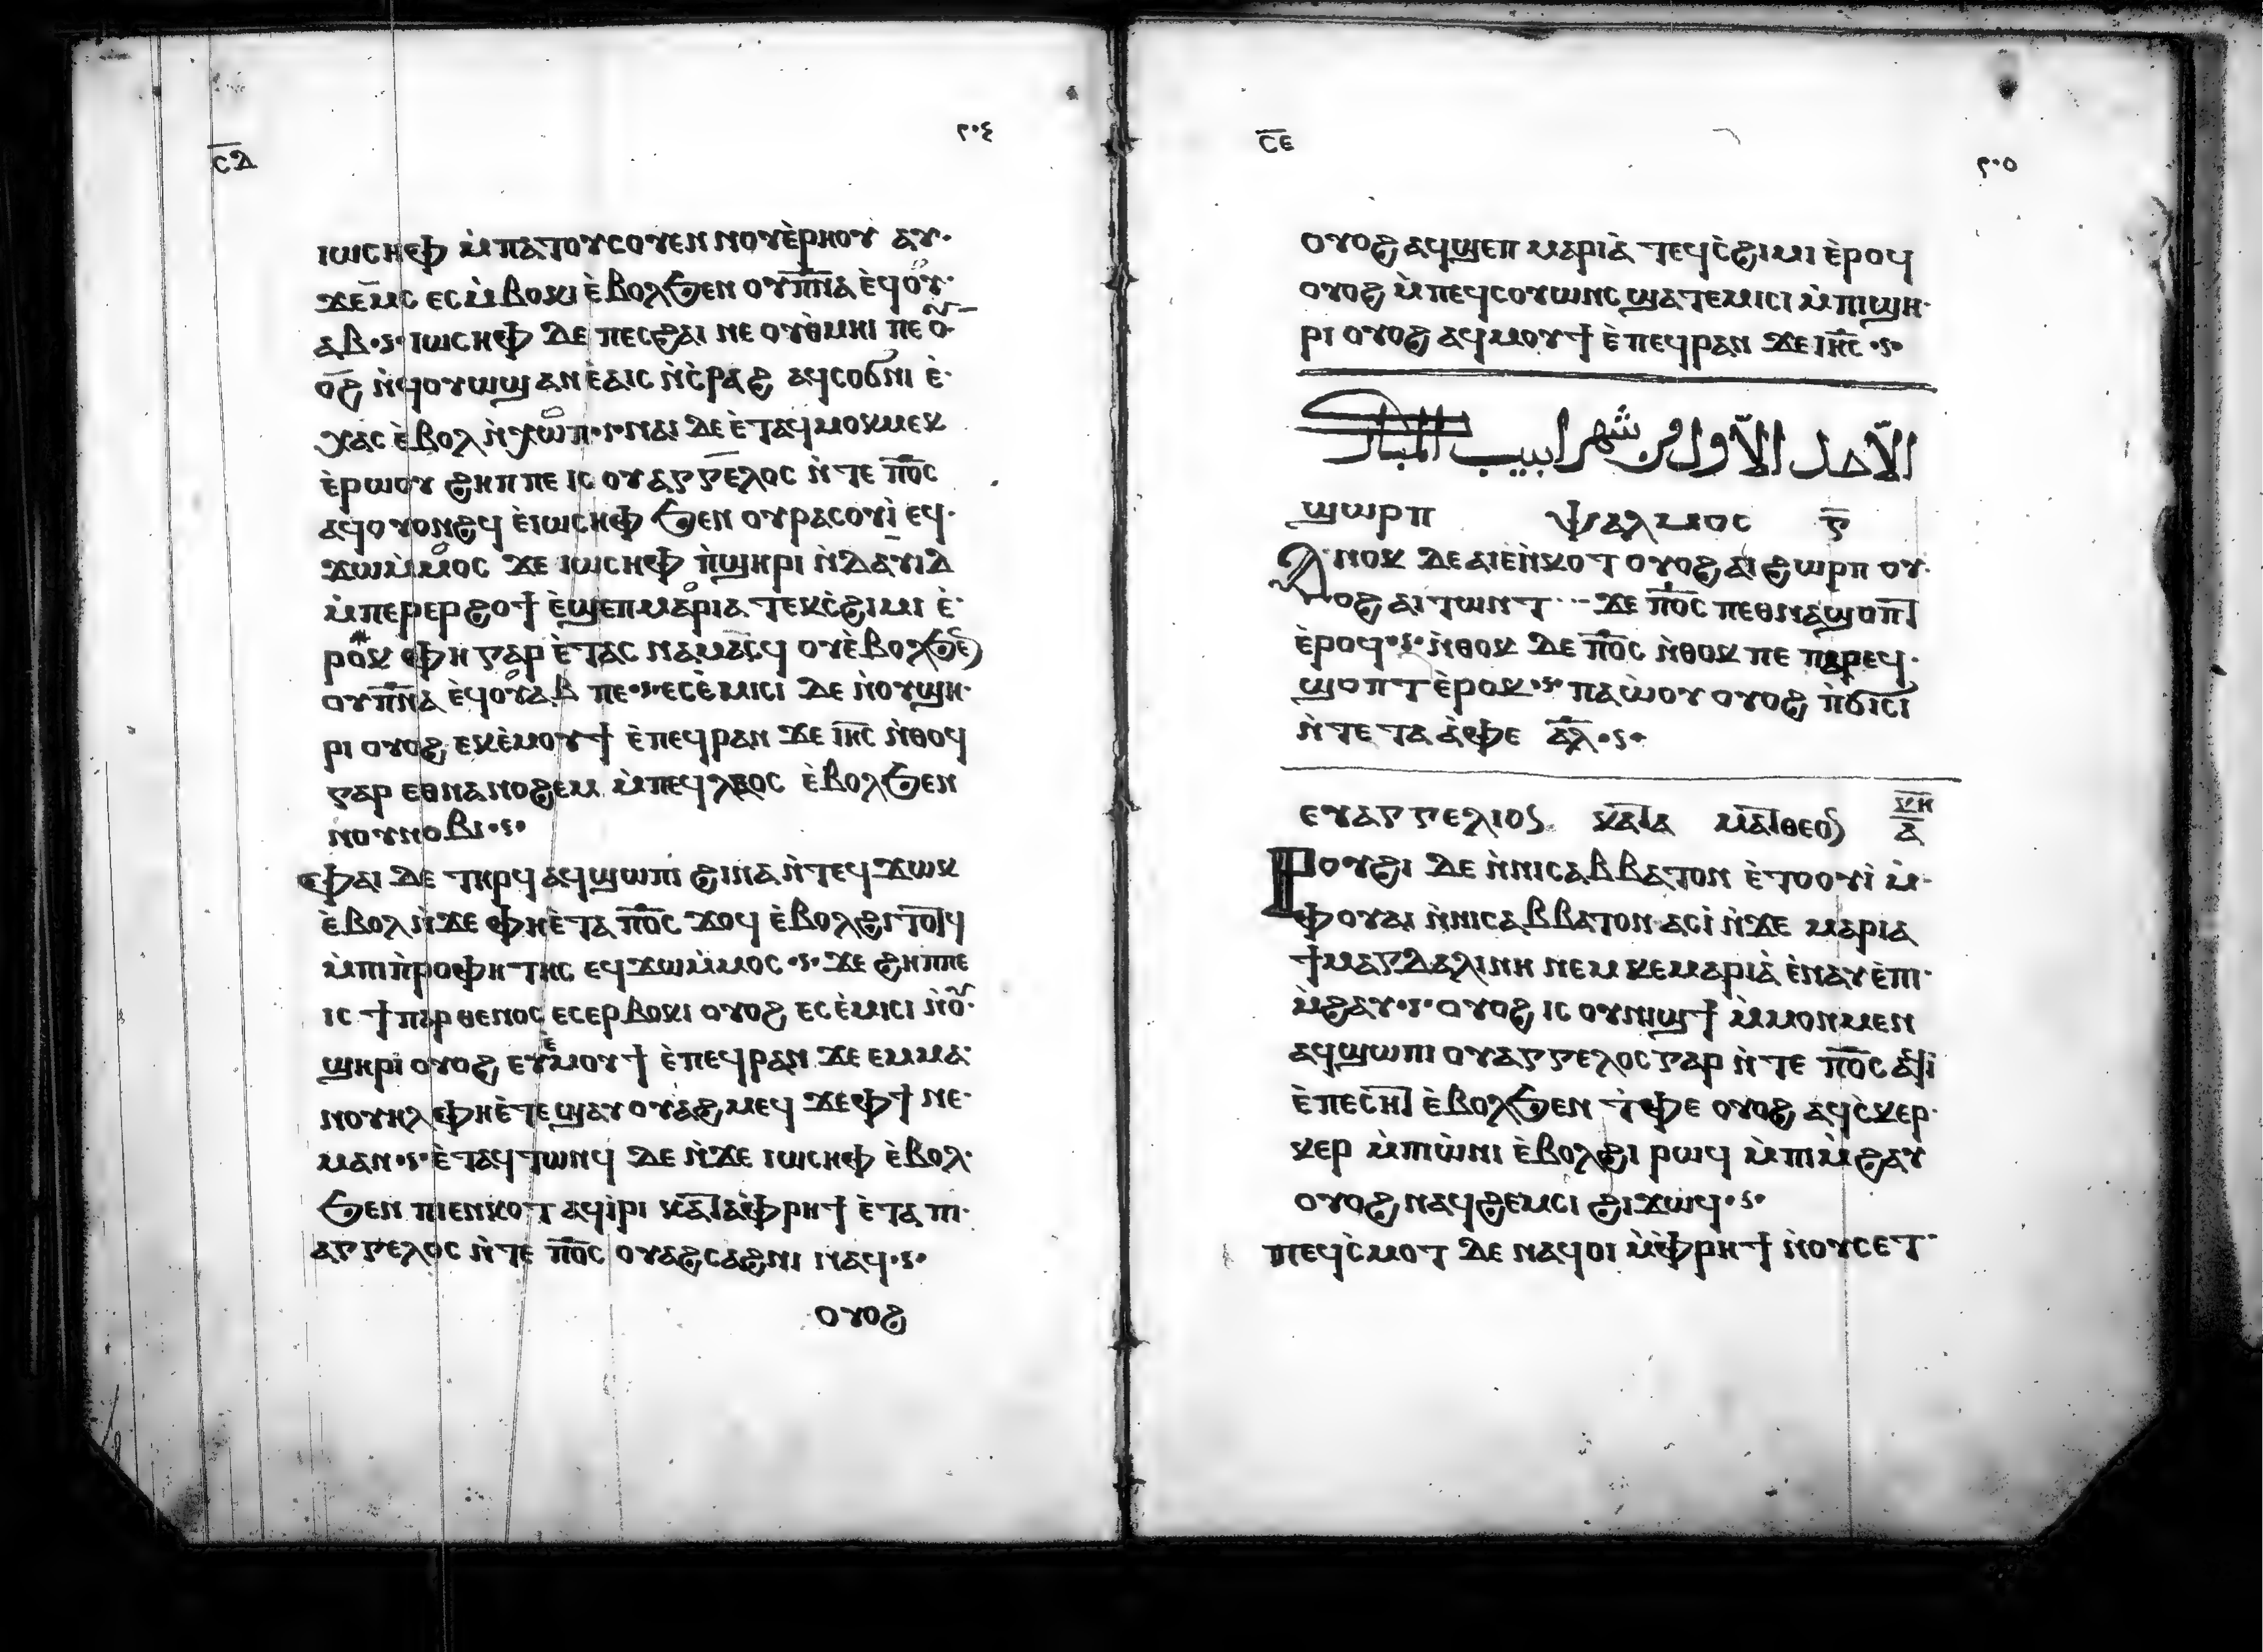 ⲥ̅ⲇ̅
٢٠٤
ⲓⲱⲥⲏⲫ ⲙ̀ⲡⲁⲧⲟⲩⲥⲟⲩⲉⲛ ⲛⲟⲩⲉ̀ⲣⲏⲟⲩ ⲁⲩ·
ϫⲉⲙⲥ ⲉⲥⲙ̀ⲃⲟⲕⲓ ⲉ̀ⲃⲟⲗϧⲉⲛ ⲟⲩⲡ̅ⲛ̅ⲁ ⲉ̀ϥⲟⲩ·
ⲁⲃ·ⲓⲱⲥⲏⲫ ⲇⲉ ⲡⲉⲥϩⲁⲓ ⲛⲉ ⲟⲩⲑⲙⲏⲓ ⲡⲉ ⲟ̀·
ⲟϩ ⲛ̀ϥⲟⲩⲱϣ ⲁⲛ ⲉ̀ⲁⲓⲥ ⲛ̀ⲥ̀ⲣⲁϩ ⲁϥⲥⲟϭⲛⲓ ⲉ̀·
ⲭⲁⲥ ⲉ̀ⲃⲟⲗ ⲛ̀ⲭⲱⲡ·ⲛⲁⲓ ⲇⲉ ⲉ̀ⲧⲁϥⲙⲟⲕⲙⲉⲕ
ⲉ̀ⲣⲱⲟⲩ ϩⲏⲡⲡⲉ ⲓⲥ ⲟⲩⲁⲅⲅⲉⲗⲟⲥ ⲛ̀ⲧⲉ ⲡ̅ⲟ̅ⲥ
ⲁϥⲟⲩⲟⲛϩϥ ⲉ̀ⲓⲱⲥⲏⲫ ϧⲉⲛ ⲟⲩⲣⲁⲥⲟⲩⲓ̀ ⲉϥ·
ϫⲱⲙ̀ⲙⲟⲥ ϫⲉ ⲓⲱⲥⲏⲫ ⲡ̀ϣⲏⲣⲓ ⲛ̀ⲇⲁⲩⲓⲇ
ⲙ̀ⲡⲉⲣⲉⲣϩⲟϯ ⲉ̀ϣⲉⲡ ⲙⲁⲣⲓⲁ ⲧⲉⲕⲥ̀ϩⲓⲙⲓ ⲉ̀·
ⲣⲟⲕ ⲫⲏ ⲅⲁⲣ ⲉ̀ⲧⲁⲥ ⲛⲁⲙⲁⲥϥ ⲟⲩⲉ̀ⲃⲟⲗϧⲉ
ⲟⲩⲡ̅ⲛ̅ⲁ ⲉ̀ϥⲟⲩⲁⲃ ⲡⲉ·ⲉⲥⲉ̀ⲙⲓⲥⲓ ⲇⲉ ⲛ̀ⲟⲩϣⲏ·
ⲣⲓ ⲟⲩⲟϩ ⲉⲕⲉ̀ⲙⲟⲩϯ ⲉ̀ⲡⲉϥⲣⲁⲛ ϫⲉ ⲓ̅ⲏ̅ⲥ ⲛ̀ⲑⲟϥ
ⲅⲁⲣ ⲉⲑⲛⲁⲛⲟϩⲉⲙ ⲙ̀ⲡⲉϥⲗⲁⲟⲥ ⲉ̀ⲃⲟⲗϧⲉⲛ
ⲛⲟⲩⲛⲟⲃⲓ·
ⲫⲁⲓ ⲇⲉ ⲧⲏⲣϥ ⲁϥϣⲱⲡⲓ ϩⲓⲛⲁ ⲛ̀ⲧⲉϥϫⲱⲕ
ⲉ̀ⲃⲟⲗ ⲛ̀ϫⲉ ⲫⲏⲉ̀ⲧⲁ ⲡ̅ⲟ̅ⲥ ϫⲟϥ ⲉ̀ⲃⲟⲗϩⲓⲧⲟⲧϥ
ⲙ̀ⲡⲓⲡ̀ⲣⲟⲫⲏⲧⲏⲥ ⲉϥϫⲱⲙ̀ⲙⲟⲥ·ϫⲉ ϩⲏⲡⲡⲉ
ⲓⲥ ϯⲡⲁⲣⲑⲉⲛⲟⲥ ⲉⲥⲉⲣⲃⲟⲕⲓ ⲟⲩⲟϩ ⲉⲥⲉ̀ⲙⲓⲥⲓ ⲛ̀ⲟ·
ϣⲏⲣⲓ ⲟⲩⲟϩ ⲉⲩⲉ̀ⲙⲟⲩϯ ⲉ̀ⲡⲉϥⲣⲁⲛ ϫⲉ ⲉⲙⲙⲁ·
ⲛⲟⲩⲏⲗ ⲫⲏⲉ̀ⲧⲉϣⲁⲩⲟⲩⲁϩⲙⲉϥ ϫⲉ ⲫϯ ⲛⲉ·
ⲙⲁⲛ·ⲉ̀ⲧⲁϥⲧⲱⲛϥ ⲇⲉ ⲛ̀ϫⲉ ⲓⲱⲥⲏⲫ ⲉ̀ⲃⲟⲗ·
ϧⲉⲛ ⲡⲓⲉⲛⲕⲟⲧ ⲁϥⲓ̀ⲣⲓ ⲕⲁⲧⲁⲫ̀ⲣⲏϯ ⲉ̀ⲧⲁ ⲡⲓ·
ⲁⲅⲅⲉⲗⲟⲥ ⲛ̀ⲧⲉ ⲡ̅ⲟ̅ⲥ ⲟⲩⲁϩⲥⲁϩⲛⲓ ⲛⲁϥ·
ⲟⲩⲟϩ
ⲥ̅ⲉ̅
٢٠٥
ⲟⲩⲟϩ ⲁϥϣⲉⲡ ⲙⲁⲣⲓⲁ̀ ⲧⲉϥⲥ̀ϩⲓⲙⲓ ⲉ̀ⲣⲟϥ
ⲟⲩⲟϩ ⲙ̀ⲡⲉϥⲥⲟⲩⲱⲛⲥ ϣⲁⲧⲉⲙⲓⲥⲓ ⲙ̀ⲡⲓϣⲏ·
ⲣⲓ ⲟⲩⲟϩ ⲁϥⲙⲟⲩϯ ⲉ̀ⲡⲉϥⲣⲁⲛ ϫⲉ ⲓ̅ⲏ̅ⲥ·
الاحد الاول من شهر ابيب المبارك
ϣⲱⲣⲡ ⲯⲁⲗⲙⲟⲥ ⲅ̅
ⲁⲛⲟⲕ ⲇⲉ ⲁⲓⲉ̀ⲛⲕⲟⲧ ⲟⲩⲟϩ ⲁⲓϩⲱⲣⲡ ⲟⲩ·
ⲟϩ ⲁⲓⲧⲱⲛⲧ ϫⲉ ⲡ̅ⲟ̅ⲥ ⲡⲉⲑⲛⲁϣⲟⲡⲧ
ⲉ̀ⲣⲟϥ·ⲛ̀ⲑⲟⲕ ⲇⲉ ⲡ̅ⲟ̅ⲥ ⲛ̀ⲑⲟⲕ ⲡⲉ ⲡⲁⲣⲉϥ·
ϣⲟⲡⲧ ⲉ̀ⲣⲟⲕ·ⲡⲁⲱ̀ⲟⲩ ⲟⲩⲟϩ ⲡ̀ϭⲓⲥⲓ
ⲛ̀ⲧⲉ ⲧⲁⲁ̀ⲫⲉ ⲁ̅ⲗ̅·
ⲉⲩⲁⲅⲅⲉⲗⲓⲟⲥ ⲕⲁⲧⲁ ⲙⲁⲧⲑⲉⲟⲥ ⲕ̅ⲏ̅
ⲁ̅
Ⲣⲟⲩϩⲓ ⲇⲉ ⲛ̀ⲛⲓⲥⲁⲃⲃⲁⲧⲟⲛ ⲉ̀ⲧⲟⲟⲩⲓ̀ ⲙ̀·
ⲫⲟⲩⲁⲓ ⲛ̀ⲛⲓⲥⲁⲃⲃⲁⲧⲟⲛ ⲁⲥⲓ̀ ⲛ̀ϫⲉ ⲙⲁⲣⲓⲁ
ϯⲙⲁⲅⲇⲁⲗⲓⲛⲏ ⲛⲉⲙ ⲕⲉⲙⲁⲣⲓⲁ̀ ⲉ̀ⲛⲁⲩ ⲉ̀ⲡⲓ·
ⲙ̀ϩⲁⲩ·ⲟⲩⲟϩ ⲓⲥ ⲟⲩⲛⲓϣϯ ⲙ̀ⲙⲟⲛⲙⲉⲛ
ⲁϥϣⲱⲡⲓ ⲟⲩⲁⲅⲅⲉⲗⲟⲥ ⲅⲁⲣ ⲛ̀ⲧⲉ ⲡ̅ⲟ̅ⲥ ⲁϥⲓ̀
ⲉ̀ⲡⲉⲥⲏⲧ ⲉ̀ⲃⲟⲗϧⲉⲛ ⲧ̀ⲫⲉ ⲟⲩⲟϩ ⲁϥⲥ̀ⲕⲉⲣ·
ⲕⲉⲣ ⲙ̀ⲡⲓⲱ̀ⲛⲓ ⲉ̀ⲃⲟⲗϩⲓ ⲣⲱϥ ⲙ̀ⲡⲓⲙ̀ϩⲁⲩ
ⲟⲩⲟϩ ⲛⲁϥϩⲉⲙⲥⲓ ϩⲓϫⲱϥ·
ⲡⲉϥⲥ̀ⲙⲟⲧ ⲇⲉ ⲛⲁϥⲟⲓ ⲙ̀ⲫ̀ⲣⲏϯ ⲛ̀ⲟⲩⲥⲉⲧ·